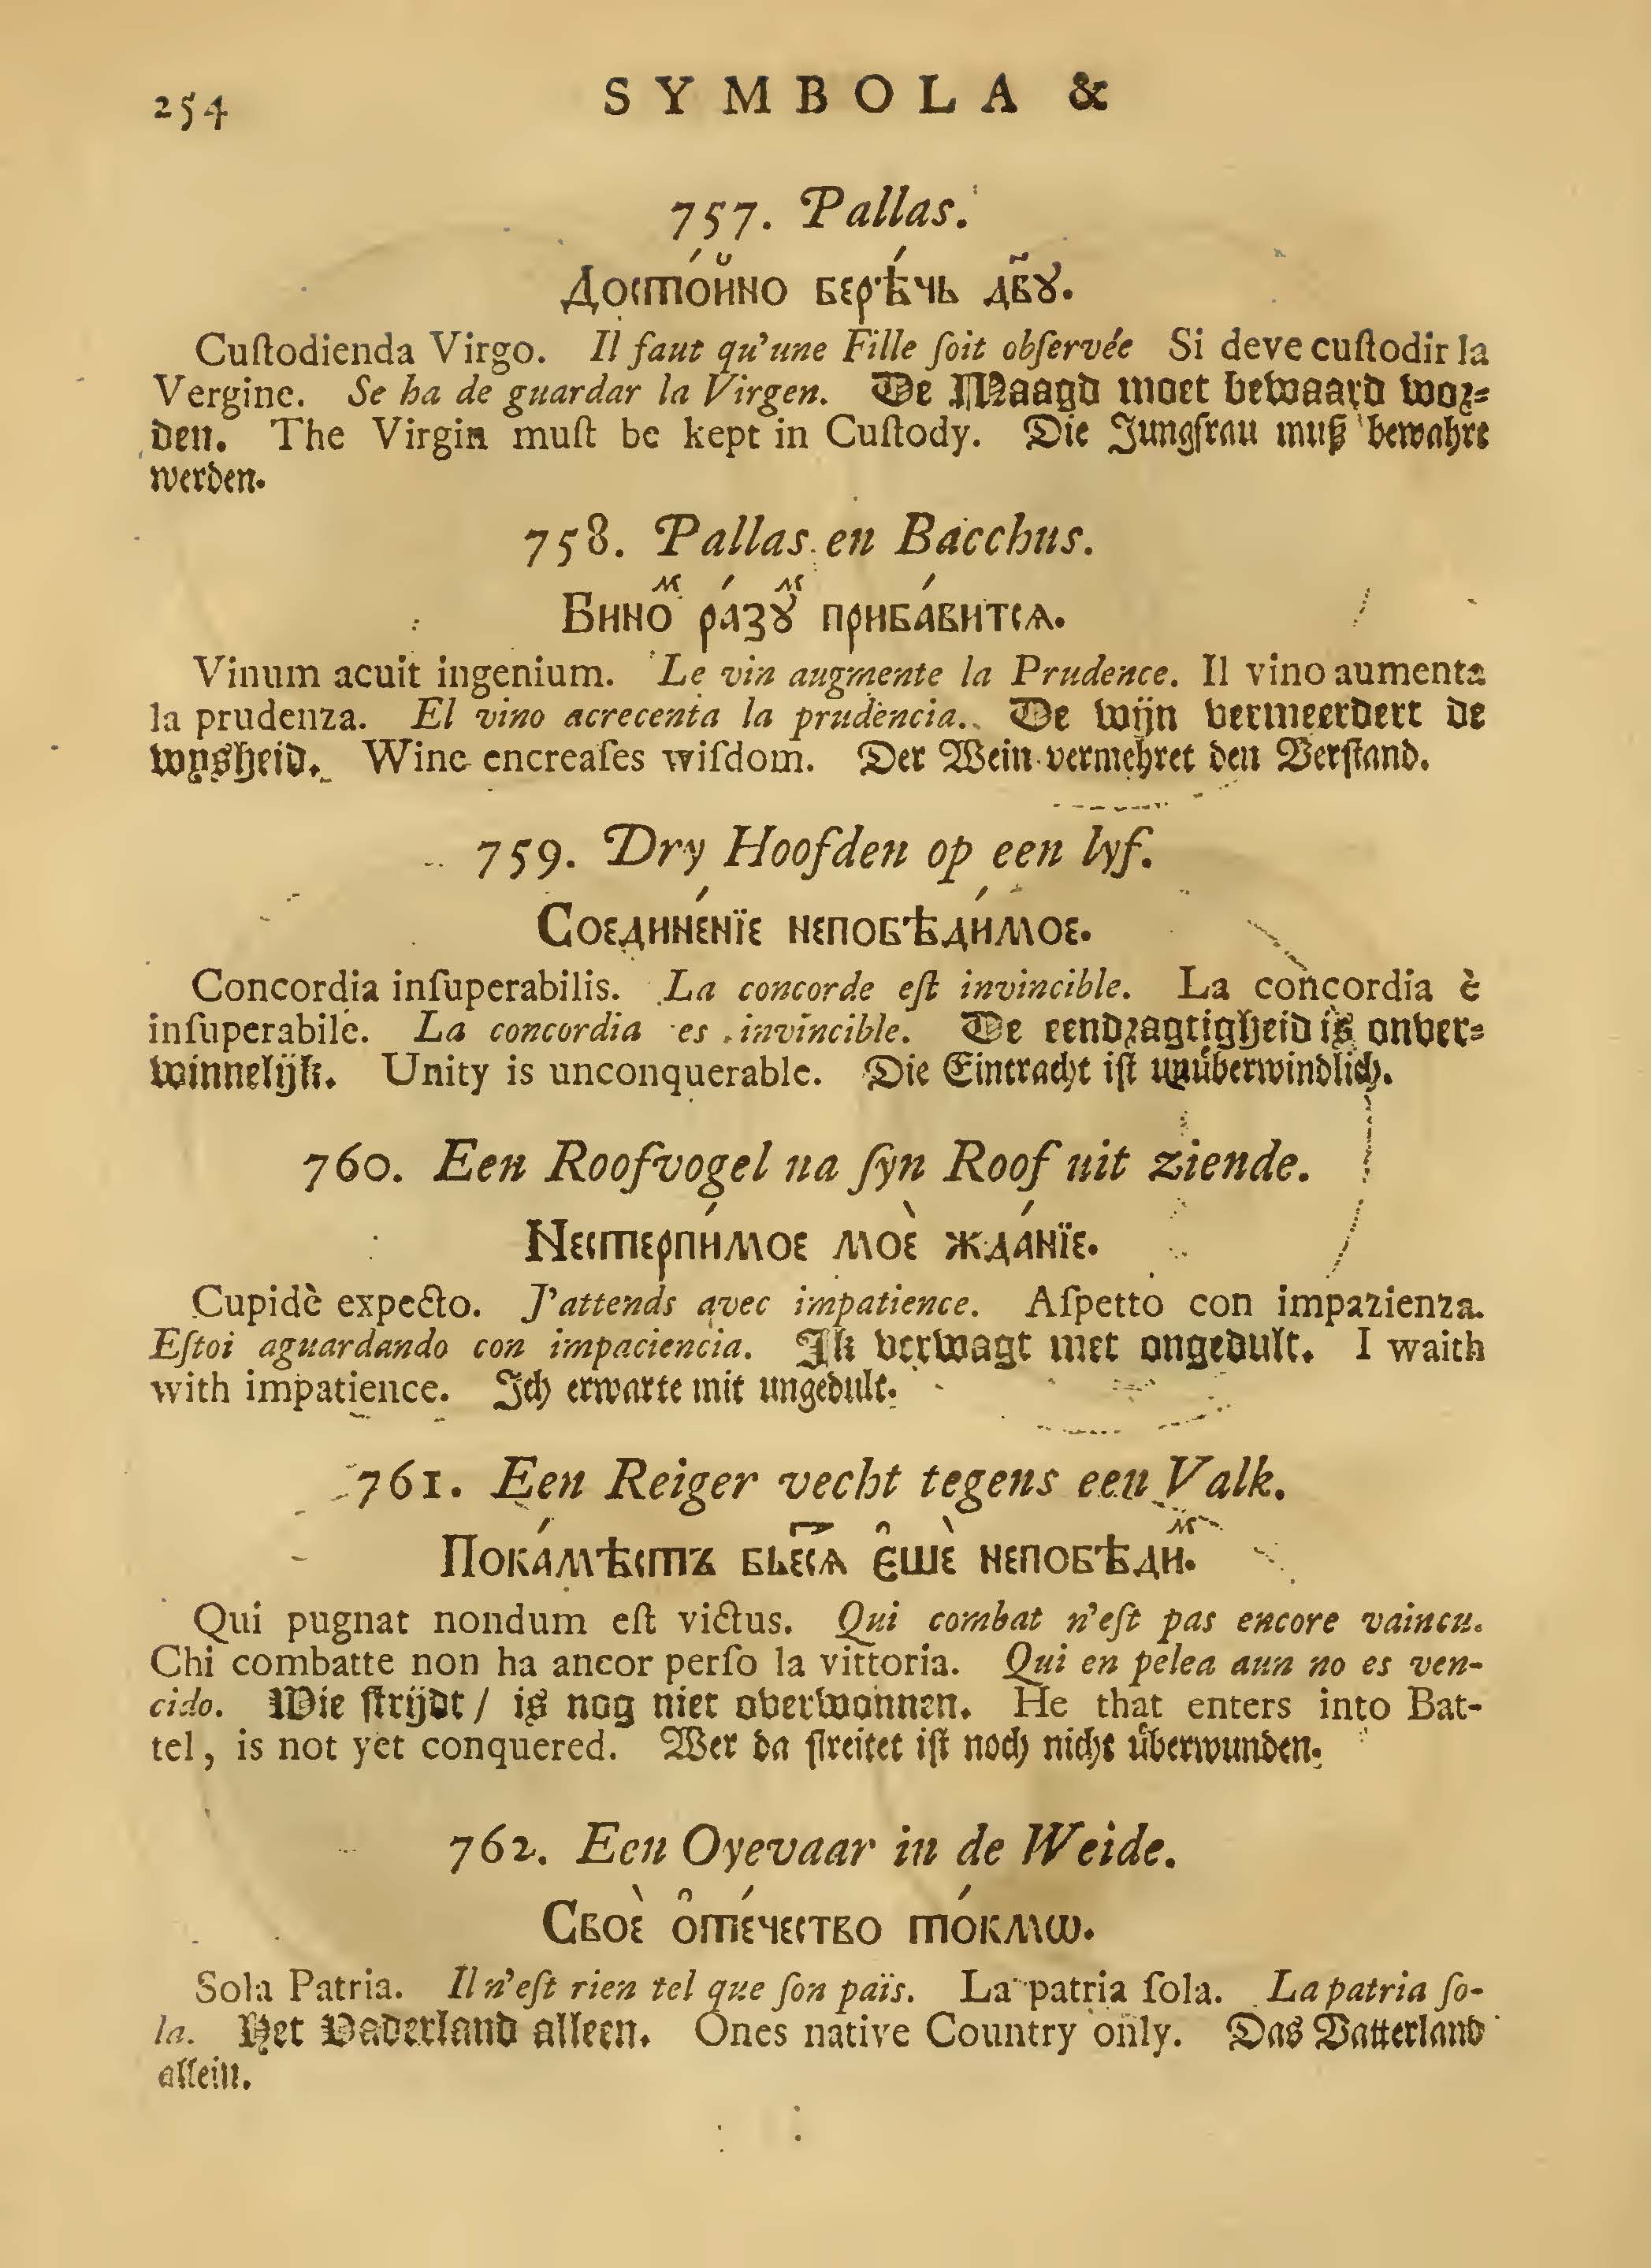 254 SYMBOLA &
757. Pallas.
Достóйно берѣ́чь дв҃ꙋ.
Cuſtodienda Virgo. Il faut qu'une Fille ſoit obſervée Si deve cuſtodir la
Vergine. Se ha de guardar la Virgen. De Maagd moet bewaard wor⸗
den. The Virgin muſt be kept in Cuſtody. Die Jungfrau muß bewahrt
werden.
758. Pallas en Bacchus.
Виноⷨ рáзꙋⷨ прибáвитсѧ.
Vinum acuit ingenium. Le vin augmente la Prudence. Il vino aumenta
la prudenza. El vino acrecenta la prudencia. De wijn vermeerdert de
wysheid. Wine encreaſes wiſdom. Der Wein vermehret den Verſtand.
759. Dry Hoofden op een lyf.
Соединéнїе непобѣди́мое.
Concordia inſuperabilis. La concorde eſt invincible. La concordia è
inſuperabile. La concordia es invincible. De eendragtigheid is onver⸗
winnelijk. Unity is unconquerable. Die Eintracht iſt unüberwindlich.
760. Een Roofvogel na ſyn Roof uit ziende.
Нестерпи́мое моѐ ждáнїе.
Cupidè expecto. J'attends avec impatience. Aſpetto con impazienza.
Eſtoi aguardando con impaciencia. Ik verwagt met ongedult. I waith
with impatience. Ich erwarte mit ungedult.
761. Een Reiger vecht tegens een Valk.
Покáмѣстъ бьеⷭ҇сѧ є҆шѐ непобѣдиⷨ.
Qui pugnat nondum eſt victus. Qui combat n'eſt pas encore vaincu.
Chi combatte non ha ancor perſo la vittoria. Qui en pelea aun no es ven-
cido. Wie ſtrijdt / is nog niet overwonnen. He that enters into Bat-
tel, is not yet conquered. Wer da ſtreitet iſt noch nicht überwunden.
762. Een Oyevaar in de Weide.
Своѐ о҆те́чество то́кмѡ.
Sola Patria. Il n'eſt rien tel que ſon païs. La patria ſola. La patria ſo-
la. Het Vaderland alleen. Ones native Country only. Das Vatterland
allein.